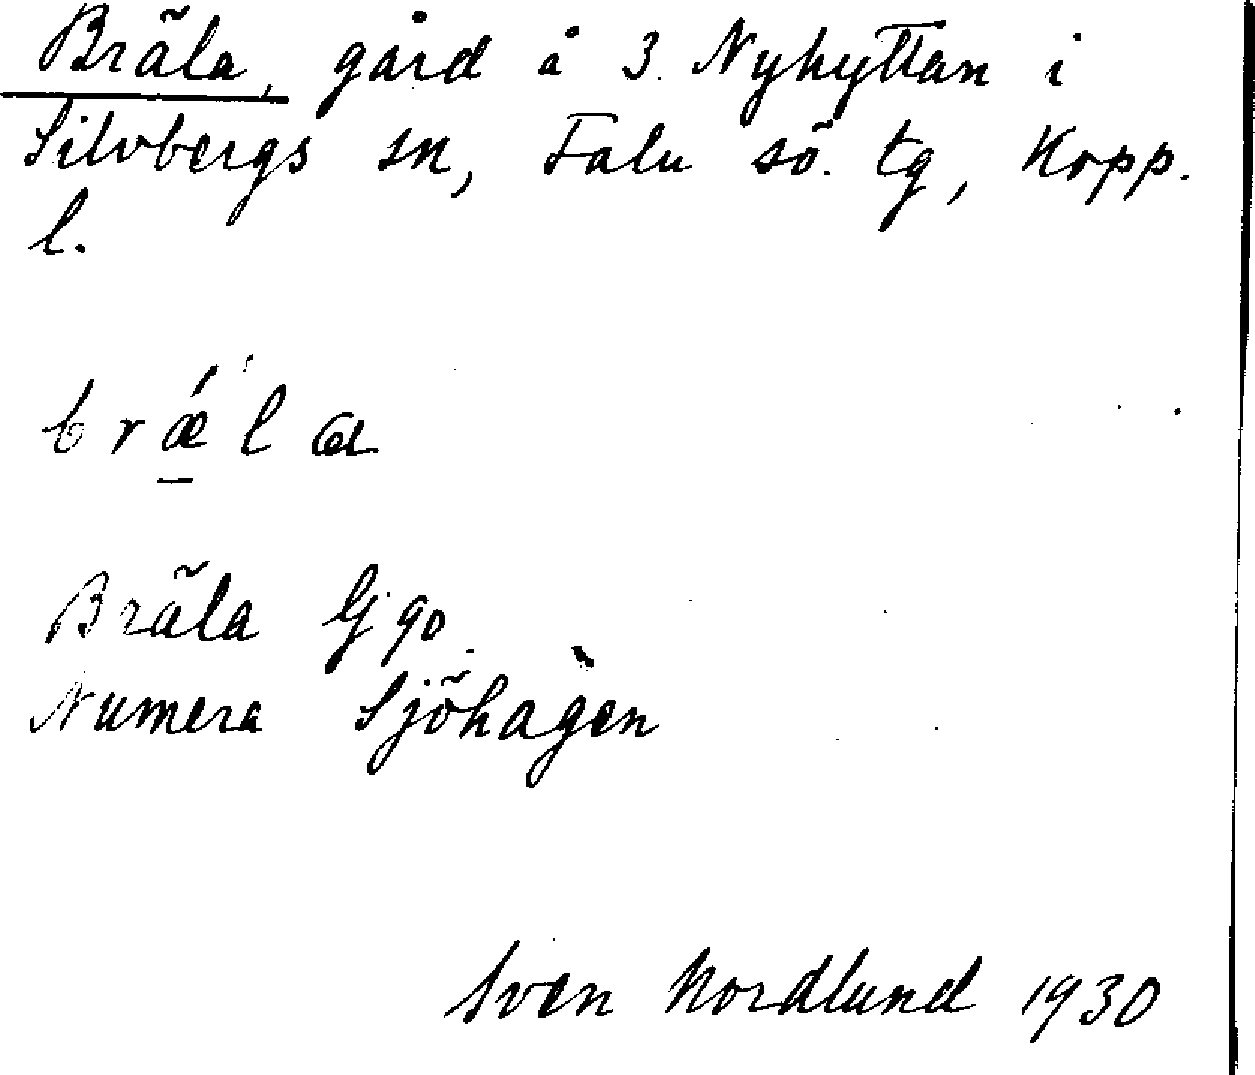 Bräla, gård å 3. Nyhyttan i
Silvbergs sn, Falu sö. tg, Kopp.
l.
brǽ̲la
Bräla Gjqo
Numera Sjöhagen
Sven Nordlund 1930